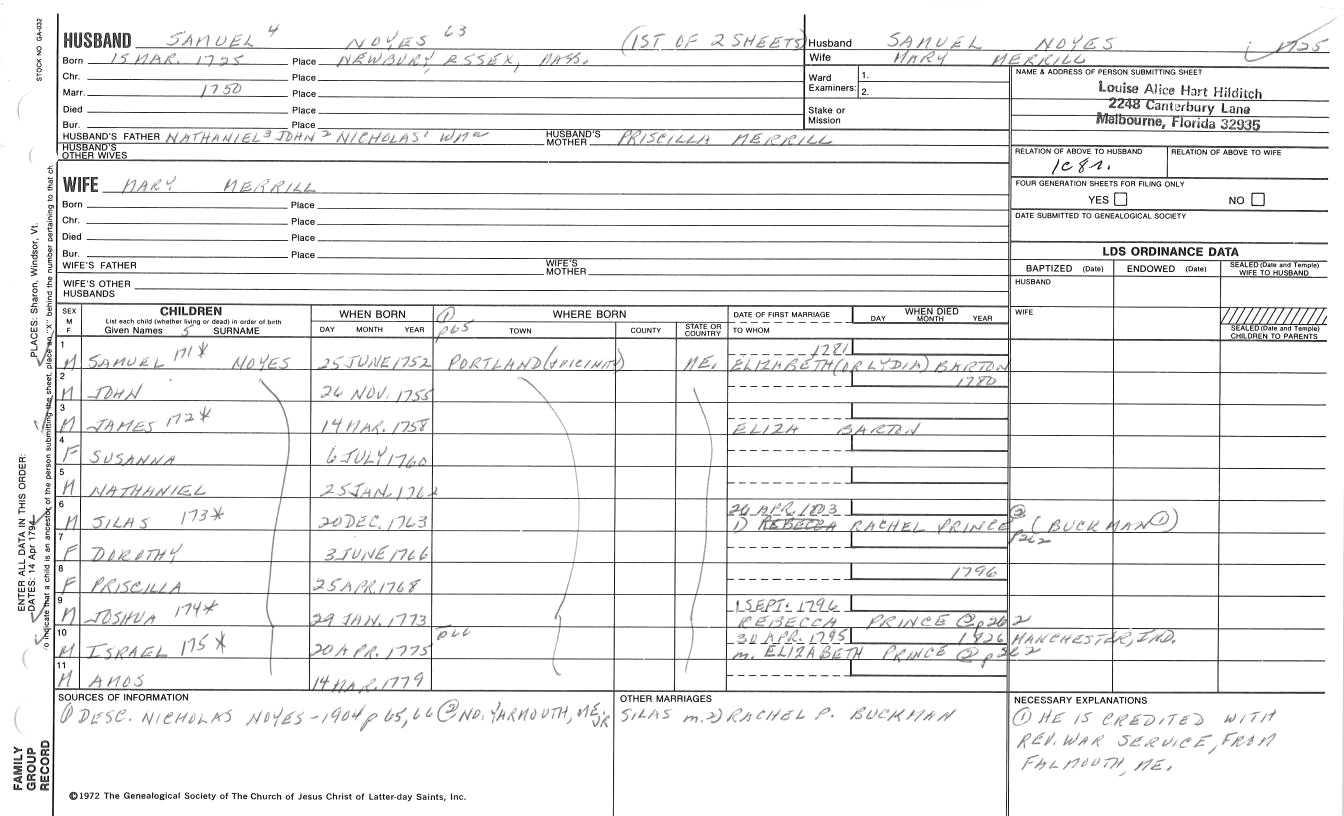 STOCK NO. GA-032
HUSBAND SAMUEL 4 NOYES 63 (1ST OF 2 SHEETS)
Born 15 MAR. 1725 Place NEWBURY, ESSEX, MASS.
Chr. Place
Marr. 1750 Place
Died Place
Bur. Place
HUSBAND'S FATHER NATHANIEL 3 JOHN 2 NICHOLAS 1 WMa HUSBAND'S MOTHER PRISCILLA MERRILL
HUSBAND'S OTHER WIVES
Husband SAMUEL NOYES 1725
Wife MARY MERRILL
Ward Examiners: 1.
2.
Stake or Mission
NAME & ADDRESS OF PERSON SUBMITTING SHEET
Louise Alice Hart Hilditch
2248 Canterbury Lane
Malbourne, Florida 32935
RELATION OF ABOVE TO HUSBAND RELATION OF ABOVE TO WIFE
1c8r.
FOUR GENERATION SHEETS FOR FILING ONLY
YES NO
DATE SUBMITTED TO GENEALOGICAL SOCIETY
WIFE MARY MERRILL
Born Place
Chr. Place
Died Place
Bur. Place
WIFE'S FATHER WIFE'S MOTHER
WIFE'S OTHER HUSBANDS
LDS ORDINANCE DATA
BAPTIZED (Date) ENDOWED (Date) SEALED (Date and Temple) WIFE TO HUSBAND
HUSBAND
WIFE
SEALED (Date and Temple) CHILDREN TO PARENTS
SEX M F
CHILDREN
List each child (whether living or dead) in order of birth
Given Names 5 SURNAME
WHEN BORN
DAY MONTH YEAR
① p65
WHERE BORN
TOWN COUNTY STATE OR COUNTRY
DATE OF FIRST MARRIAGE
TO WHOM
WHEN DIED
DAY MONTH YEAR
1 M SAMUEL 171* NOYES 25 JUNE 1752 PORTLAND (VICINITY) ME. 1781 ELIZABETH (OR LYDIA) BARTON
2 M JOHN 26 NOV. 1755 1780
3 M JAMES 172* 14 MAR. 1758 ELIZA BARTON
4 F SUSANNA 6 JULY 1760
5 M NATHANIEL 25 JAN. 1762
6 M SILAS 173* 20 DEC. 1763 26 APR. 1803 1) REBECCA RACHEL PRINCE ② p262 (BUCKMAN ①)
7 F DOROTHY 3 JUNE 1766
8 F PRISCILLA 25 APR. 1768 1796
9 M JOSHUA 174* 29 JAN. 1773 1 SEPT. 1796 REBECCA PRINCE ② p262
10 M ISRAEL 175* 20 APR. 1775 p66 30 APR. 1795 1826 MANCHESTER, IND.
m. ELIZABETH PRINCE ② p262
11 M AMOS 14 MAR. 1779
SOURCES OF INFORMATION
① DESC. NICHOLAS NOYES - 1904 p 65, 66 ② NO. YARMOUTH, ME. JR
OTHER MARRIAGES
SILAS m. 2) RACHEL P. BUCKMAN
NECESSARY EXPLANATIONS
① HE IS CREDITED WITH
REV. WAR SERVICE, FROM
FALMOUTH, ME.
©1972 The Genealogical Society of The Church of Jesus Christ of Latter-day Saints, Inc.
FAMILY GROUP RECORD
ENTER ALL DATA IN THIS ORDER:
DATES: 14 Apr 1794
PLACES: Sharon, Windsor, Vt.
To indicate that a child is an ancestor of the person submitting the sheet, place an "X" behind the number pertaining to that ch